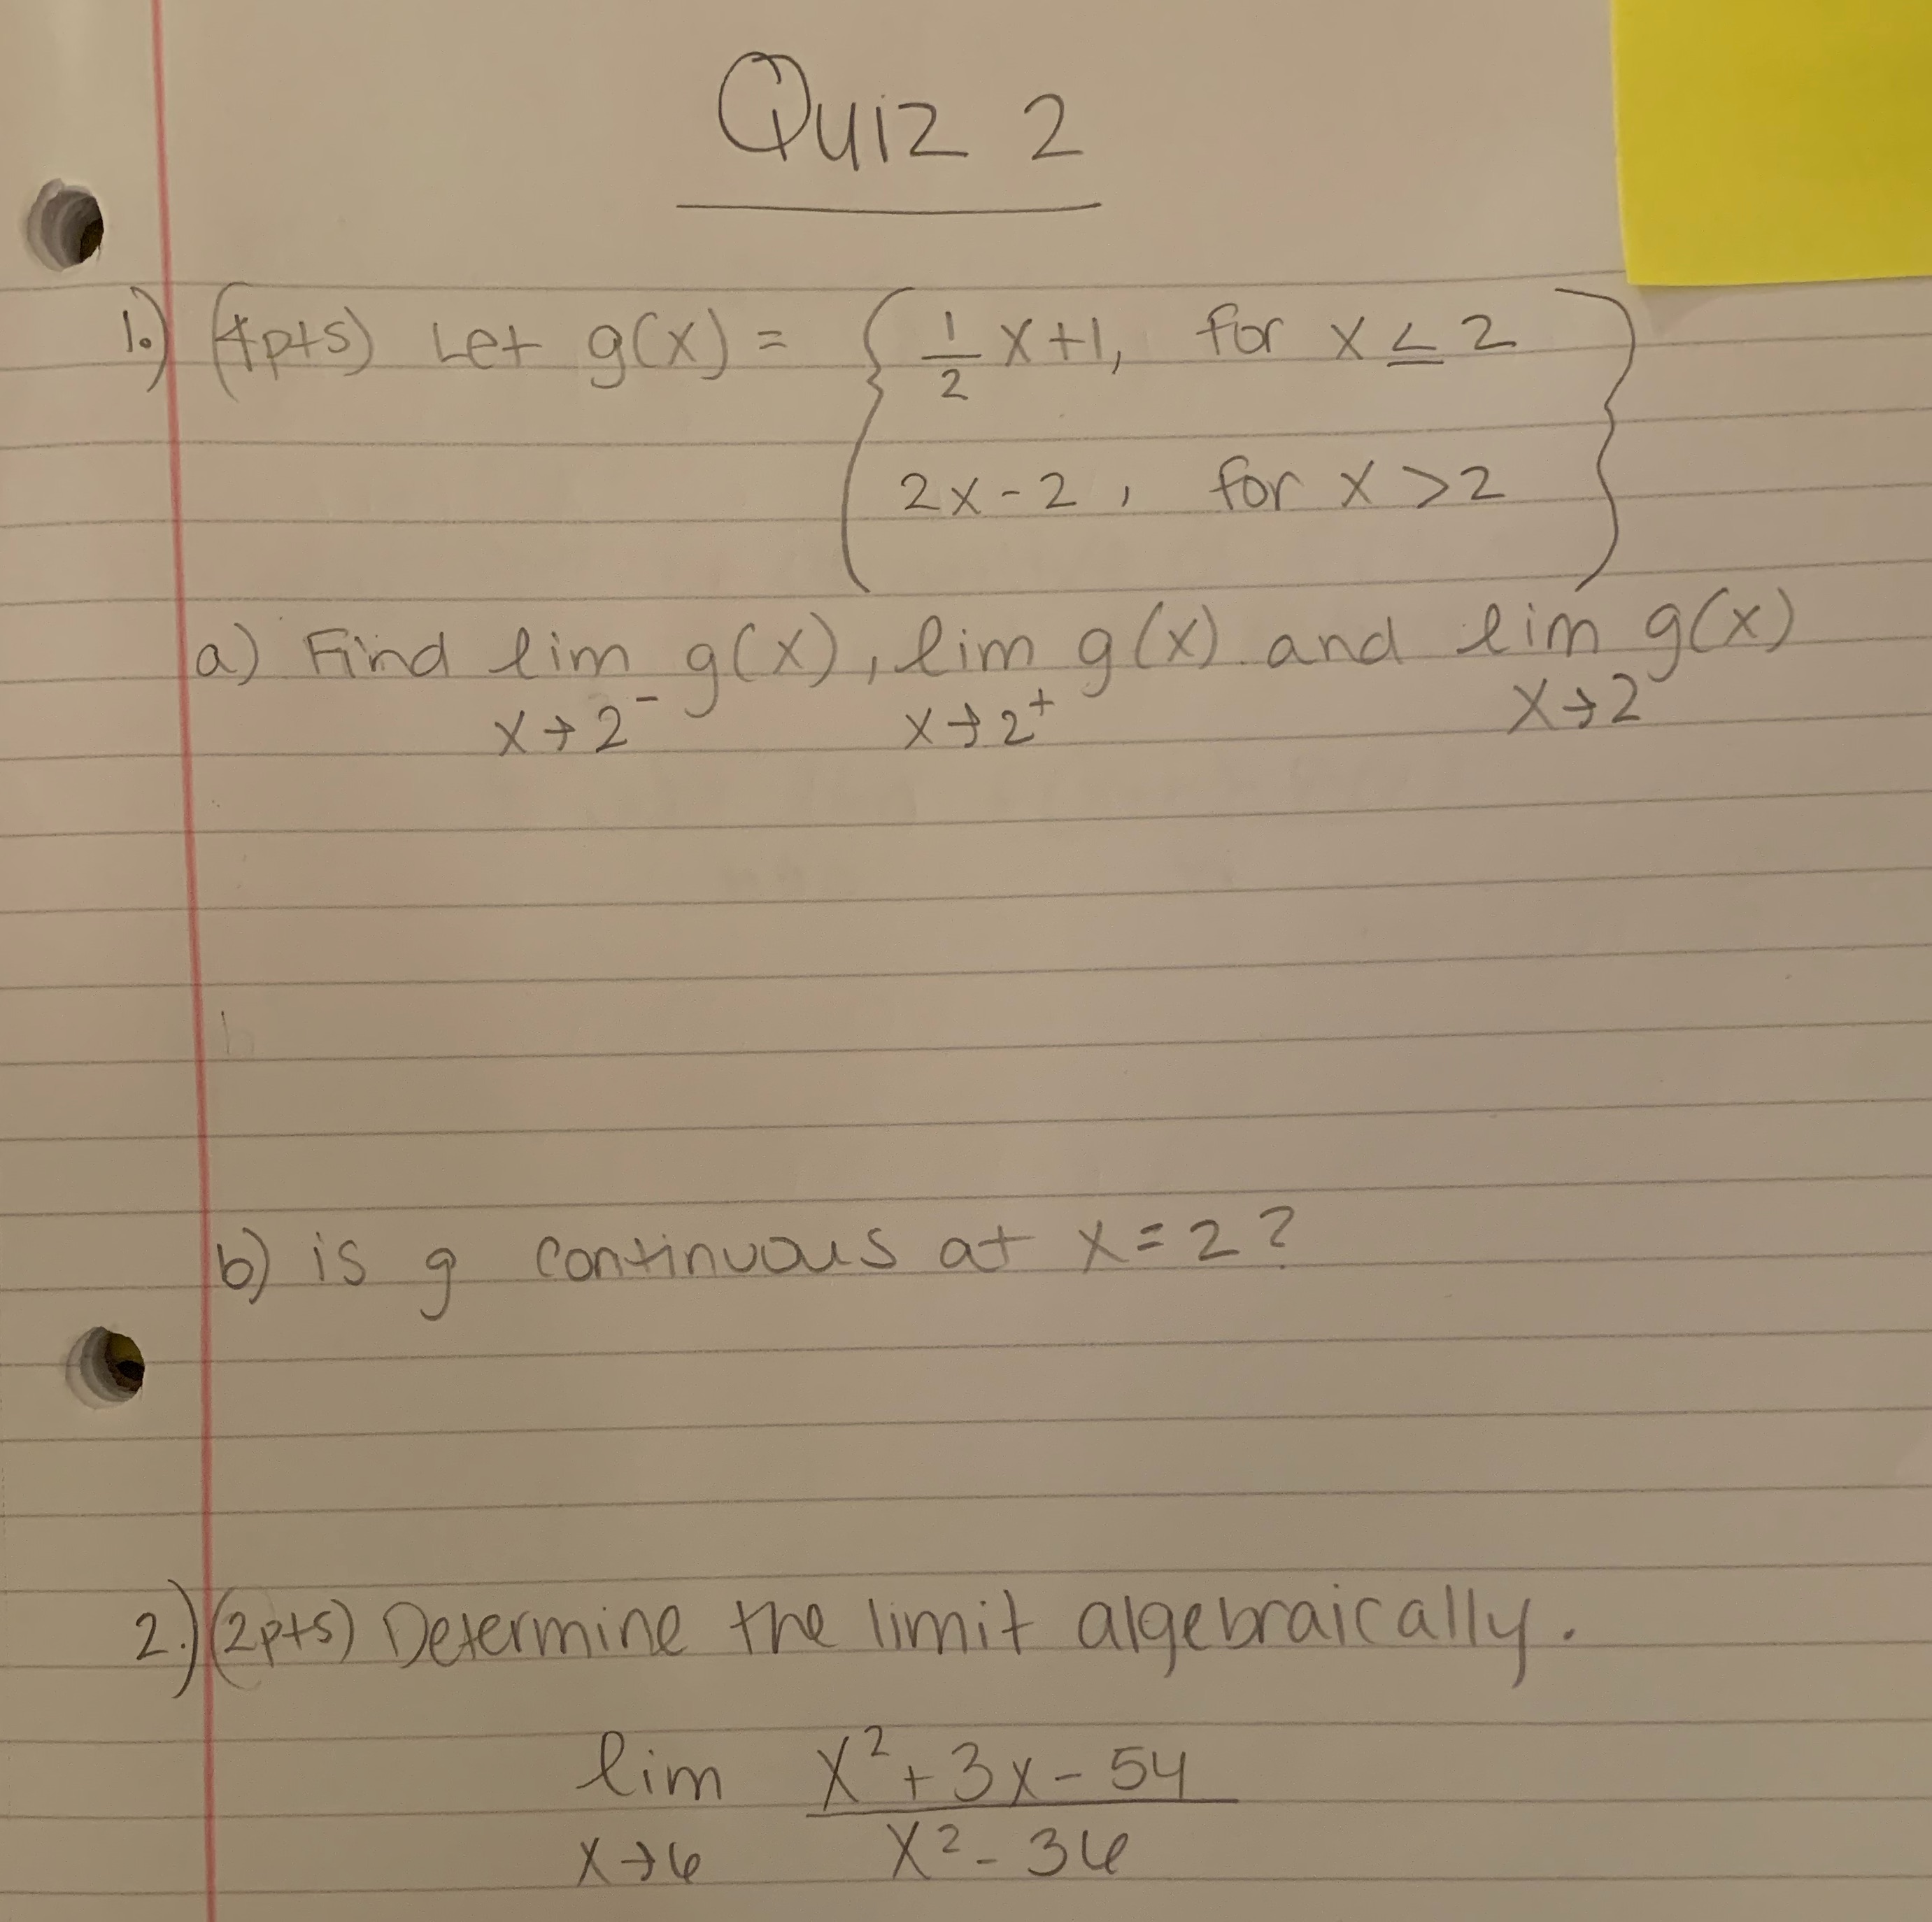 Quiz 2
1.) (4pts) Let g(x) = { 1/2 x+1, for x ≤ 2
2x-2, for x >2 }
a) Find lim x→2⁻ g(x), lim x→2⁺ g(x) and lim x→2 g(x)
b) is g continuous at x=2?
2.) (2pts) Determine the limit algebraically.
lim x→6 (x²+3x-54)/(x²-36)